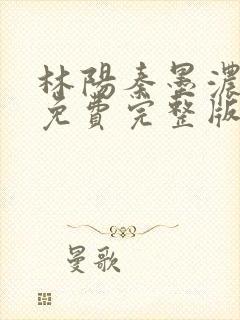 林陽秦墨濃
免費完整版
曼歌